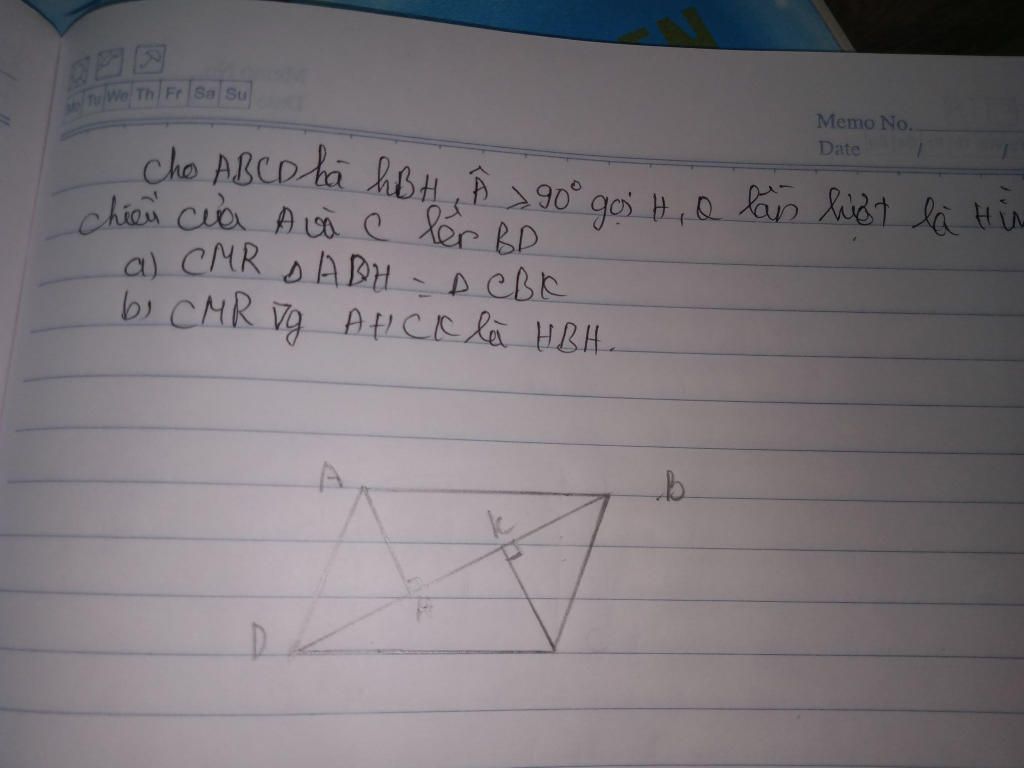 EN
Mo Tu We Th Fr Sa Su
Memo No.
Date / /
Cho ABCD là hBH, Â > 90° gọi H, Q lần lượt là Hìn
chiếu của A và C lên BD
a) CMR Δ ABH = Δ CBK
b) CMR Tg AHCK là HBH.
A B
K
H
D C